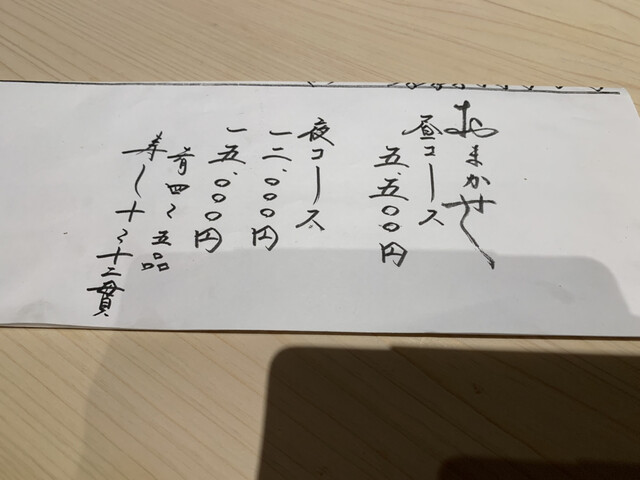 おまかせ
昼コース
五.五〇〇円
夜コース
一二.〇〇〇円
一五.〇〇〇円
肴四〜五品
寿し十〜十二貫